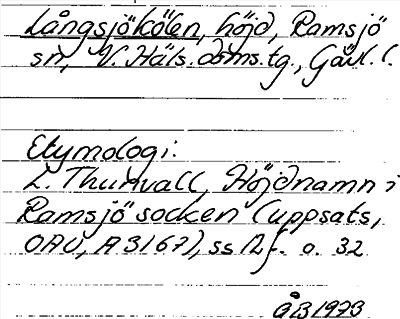 Långsjökölen, höjd, Ramsjö
sn, V. Häls. doms.tg., Gävl. l.
Etymologi:
L. Thunvall, Höjdnamn i
Ramsjö socken (uppsats,
OAU, A 3167), ss 12 f. o. 32
ÅB 1973